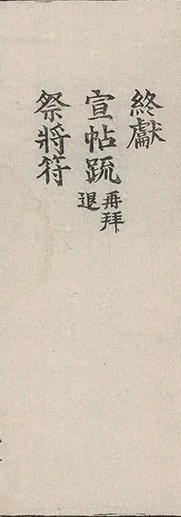 終獻
宣帖䟽再拜退
祭將符